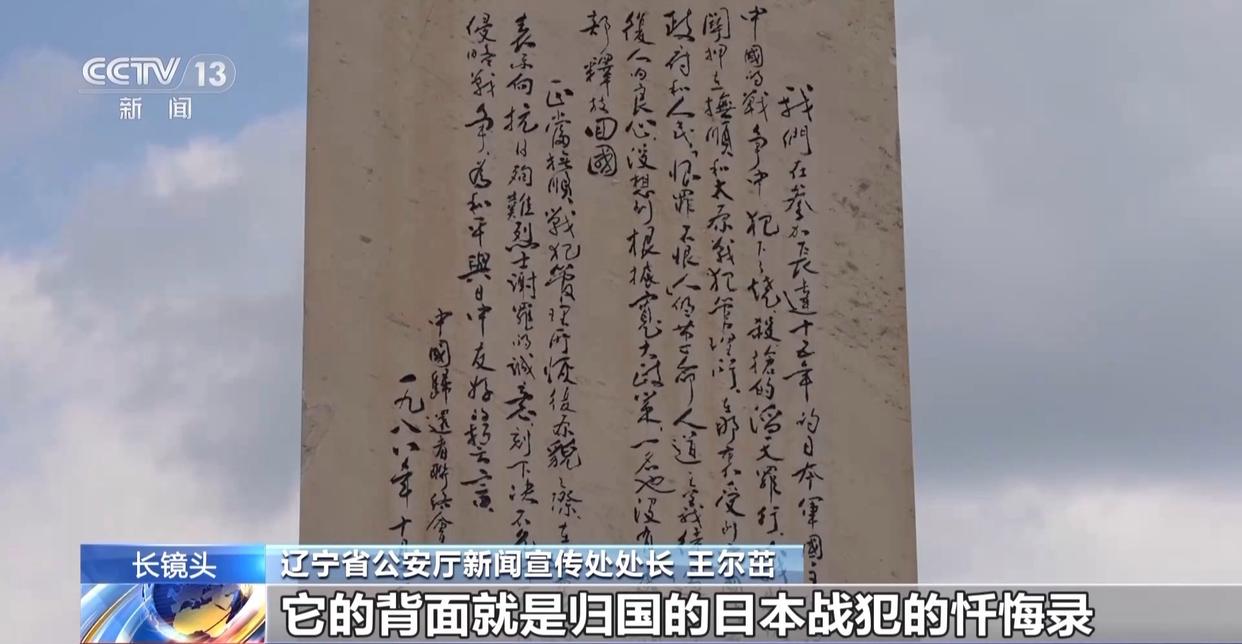 CCTV 13
新闻
我們在參加長達十五年的日本軍國主
中國的戰爭中犯下了燒殺搶的滔天罪行
關押在撫順和太原戰犯管理所,在那裏受
政府和人民“恨罪不恨人”的革命人道主義待
復人的良心,沒想到根據寬大政策,一名也沒有
部釋放回國
正當撫順戰犯管理所恢復原貌之際,在
表示向抗日殉難烈士謝罪的誠意,刻下决不允
侵略戰爭,為和平與日中友好的誓言
中國歸還者聯絡會
一九八八年十
长镜头
辽宁省公安厅新闻宣传处处长 王尔茁
它的背面就是归国的日本战犯的忏悔录